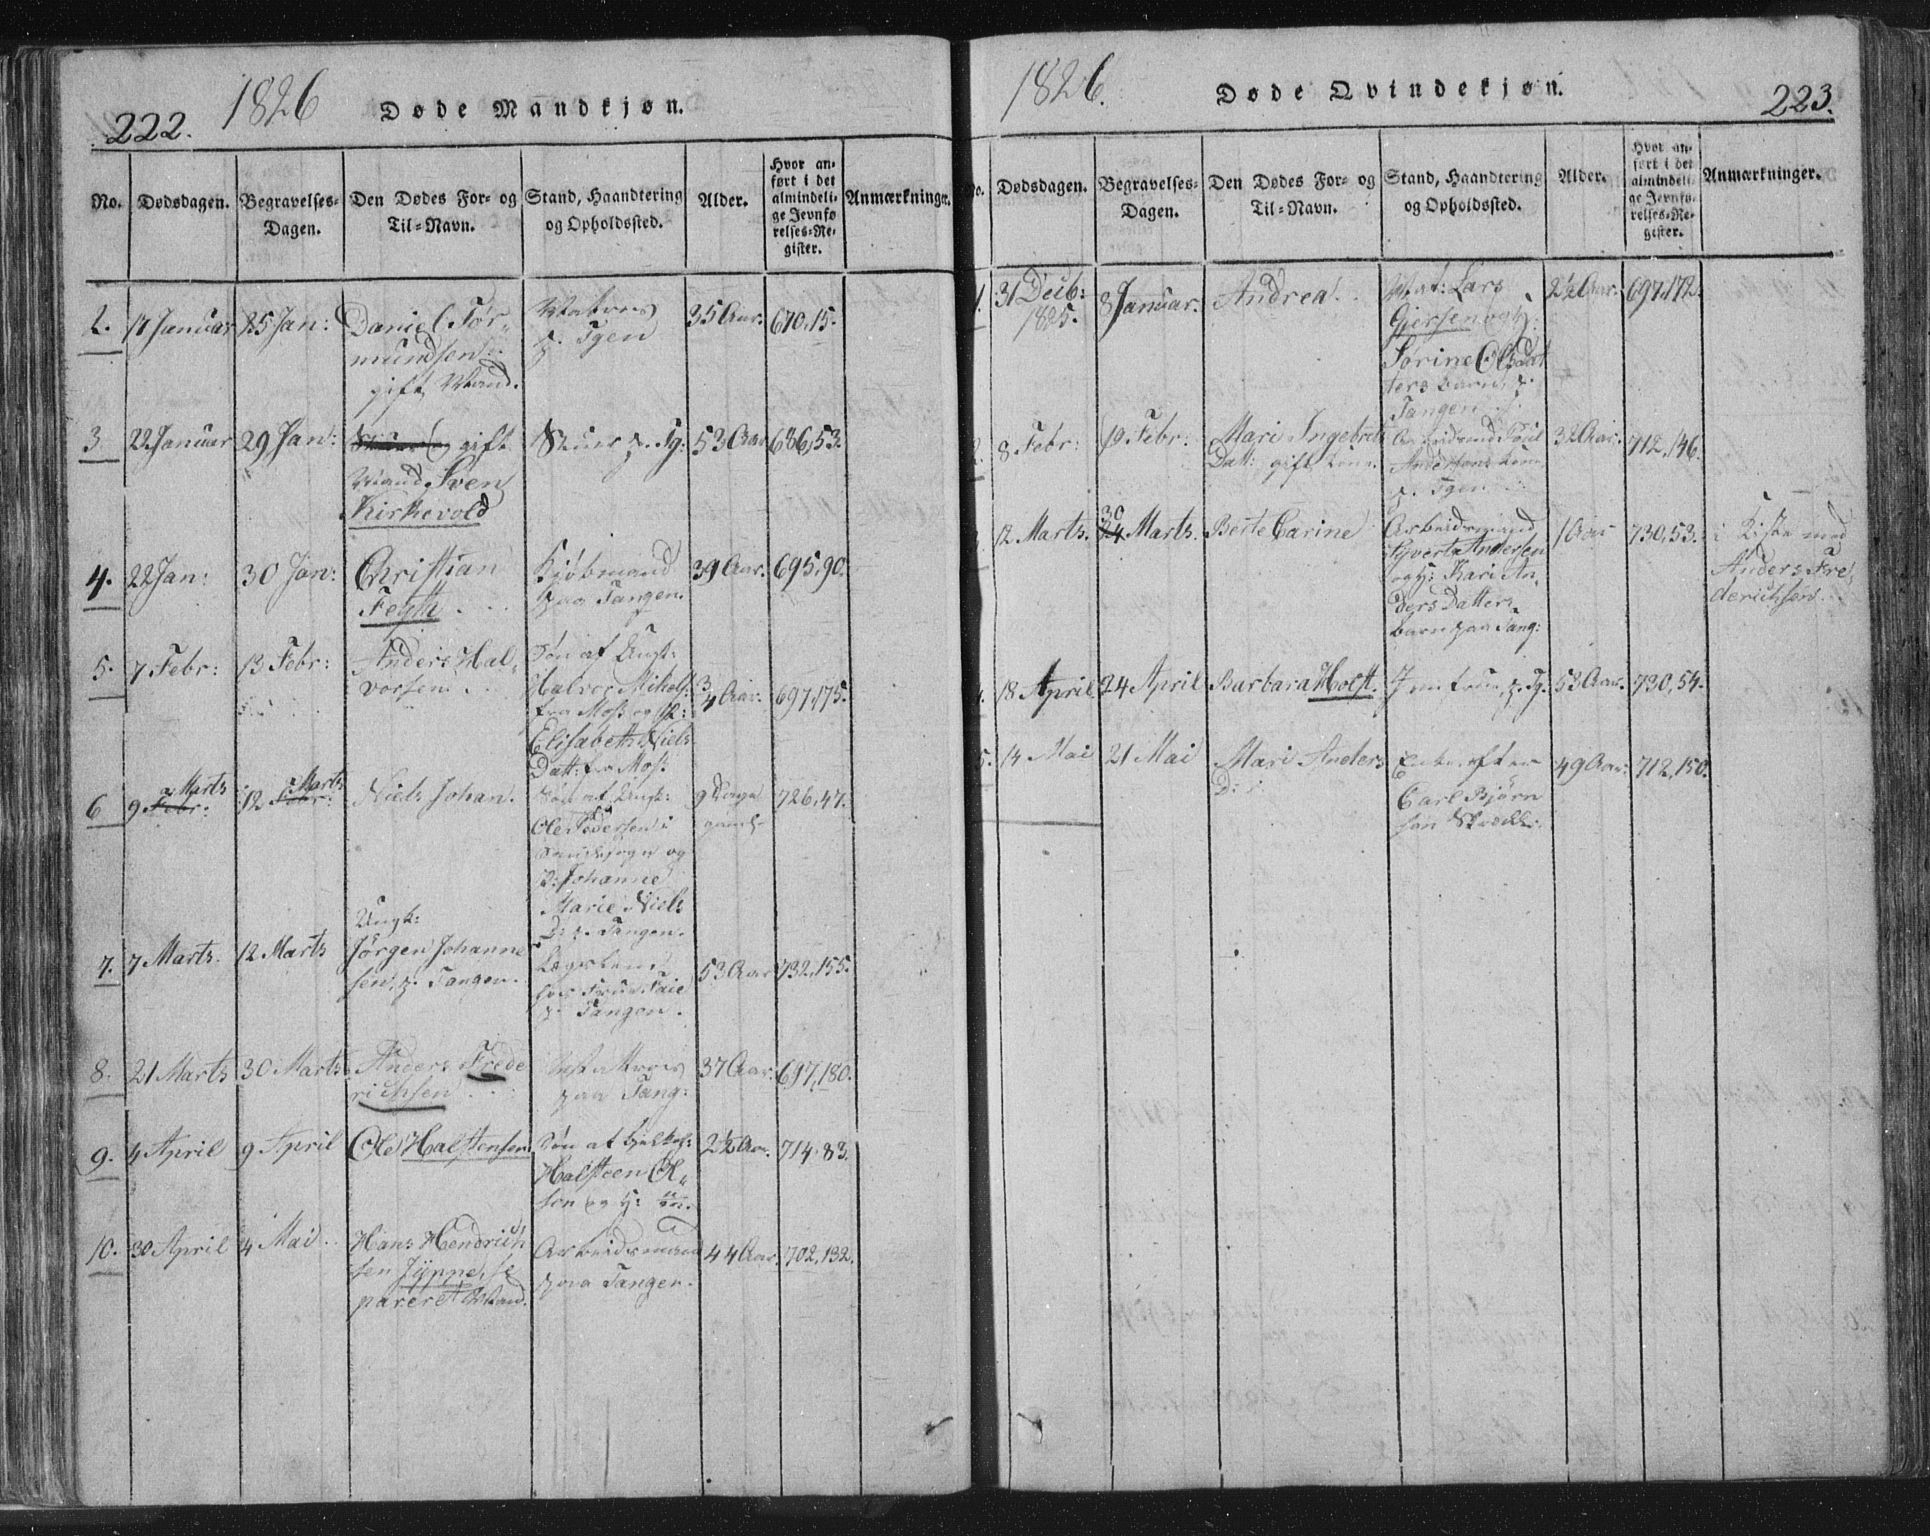 222.
1826
Døde Mandkjøn.
No.
Dødsdagen.
Begravelses-
Dagen.
Den Dødes For- og
Til-Navn.
Stand, Haandtering
og Opholdssted.
Alder.
Hvor an-
ført i det
almindeli-
ge Jevnfø
relses-Re-
gister.
Anmærkninger.
2.
17 Januar
25 Jan:
Daniel Tør-
mundsen
gift Mand.
Matros
p. Tgen
35 Aar.
670,15.
3
22 Januar
29 Jan:
gift
Mand Sven
Kirkevold
p. Tg:
53 Aar
686,53.
4.
22 Jan:
30 Jan:
Christian
Feyth
Kjøbmand
paa Tangen.
39 Aar.
695,90.
5.
7 Febr:
13 Febr:
Anders Hal-
vorsen
Søn af Ungk:
Halvor Mikels:
fra Moss og
Elisabeth Niels
Datt: fra Moss
3/4 Aar.
697,175.
6
9 Marts
Febr:
12 Marts
Febr:
Niels Johan.
Søn af Ungk:
Ole Pedersen i
og
P: Johanne
Marie Niels
D: p. Tangen.
9 Dage
gaml
726,47.
7.
7 Marts.
12 Marts
Ungk:
Jørgen Johanne
sen, p. Tangen.
Logerende
hos
p. Tangen.
53 Aar
732,155.
8.
21 Marts
30 Marts.
Anders Frede
richsen
Matros
paa Tang:
37 Aar.
697,180.
9.
4 April
9 April
Ole Halstensen
Søn af
Halsteen Ol-
sen og H:
2½ Aar.
714,83.
10.
30 April
4 Mai
Hans Hendrich
sen Jÿppe, se
pareret Mand.
Arbeidsmand
paa Tangen.
44 Aar.
702,132.
1826.
Døde Qvindekjøn.
223.
No.
Dødsdagen.
Begravelses-
Dagen.
Den Dødes For- og
Til-Navn.
Stand, Haandtering
og Opholdssted.
Alder.
Hvor an-
ført i det
almindeli-
ge Jevnfø-
relses-Re-
gister.
Anmærkninger.
1.
31 Decb:
1825.
8 Januar.
Andrea.
Mat: Lars
Gjersen og H:
Sørine Olsdat
ters barn, p.
Tangen
2½ Aar.
697,172.
2.
8 Febr:
19 Febr:
Mari Ingebrets
Datt: gift kone.
Arbeidsmand
Andersens kone
p. Tgen
32 Aar.
712,146.
3.
12 Marts.
30
24 Marts.
Berte Carine
Arbeidsmand
Syvert Andersen
og H: Kari An-
ders Datters
barn paa Tang:
1 Aar
730,53.
i Kiste med
Anders Fre-
derichsen.
4.
18 April
24 April
Barbara Holst.
Jomfrue, p. Tg:
53 Aar.
730,54.
5.
14 Mai
21 Mai
Mari Anders
D:
Enke efter
Carl Bjørn
sen
49 Aar.
712,150.